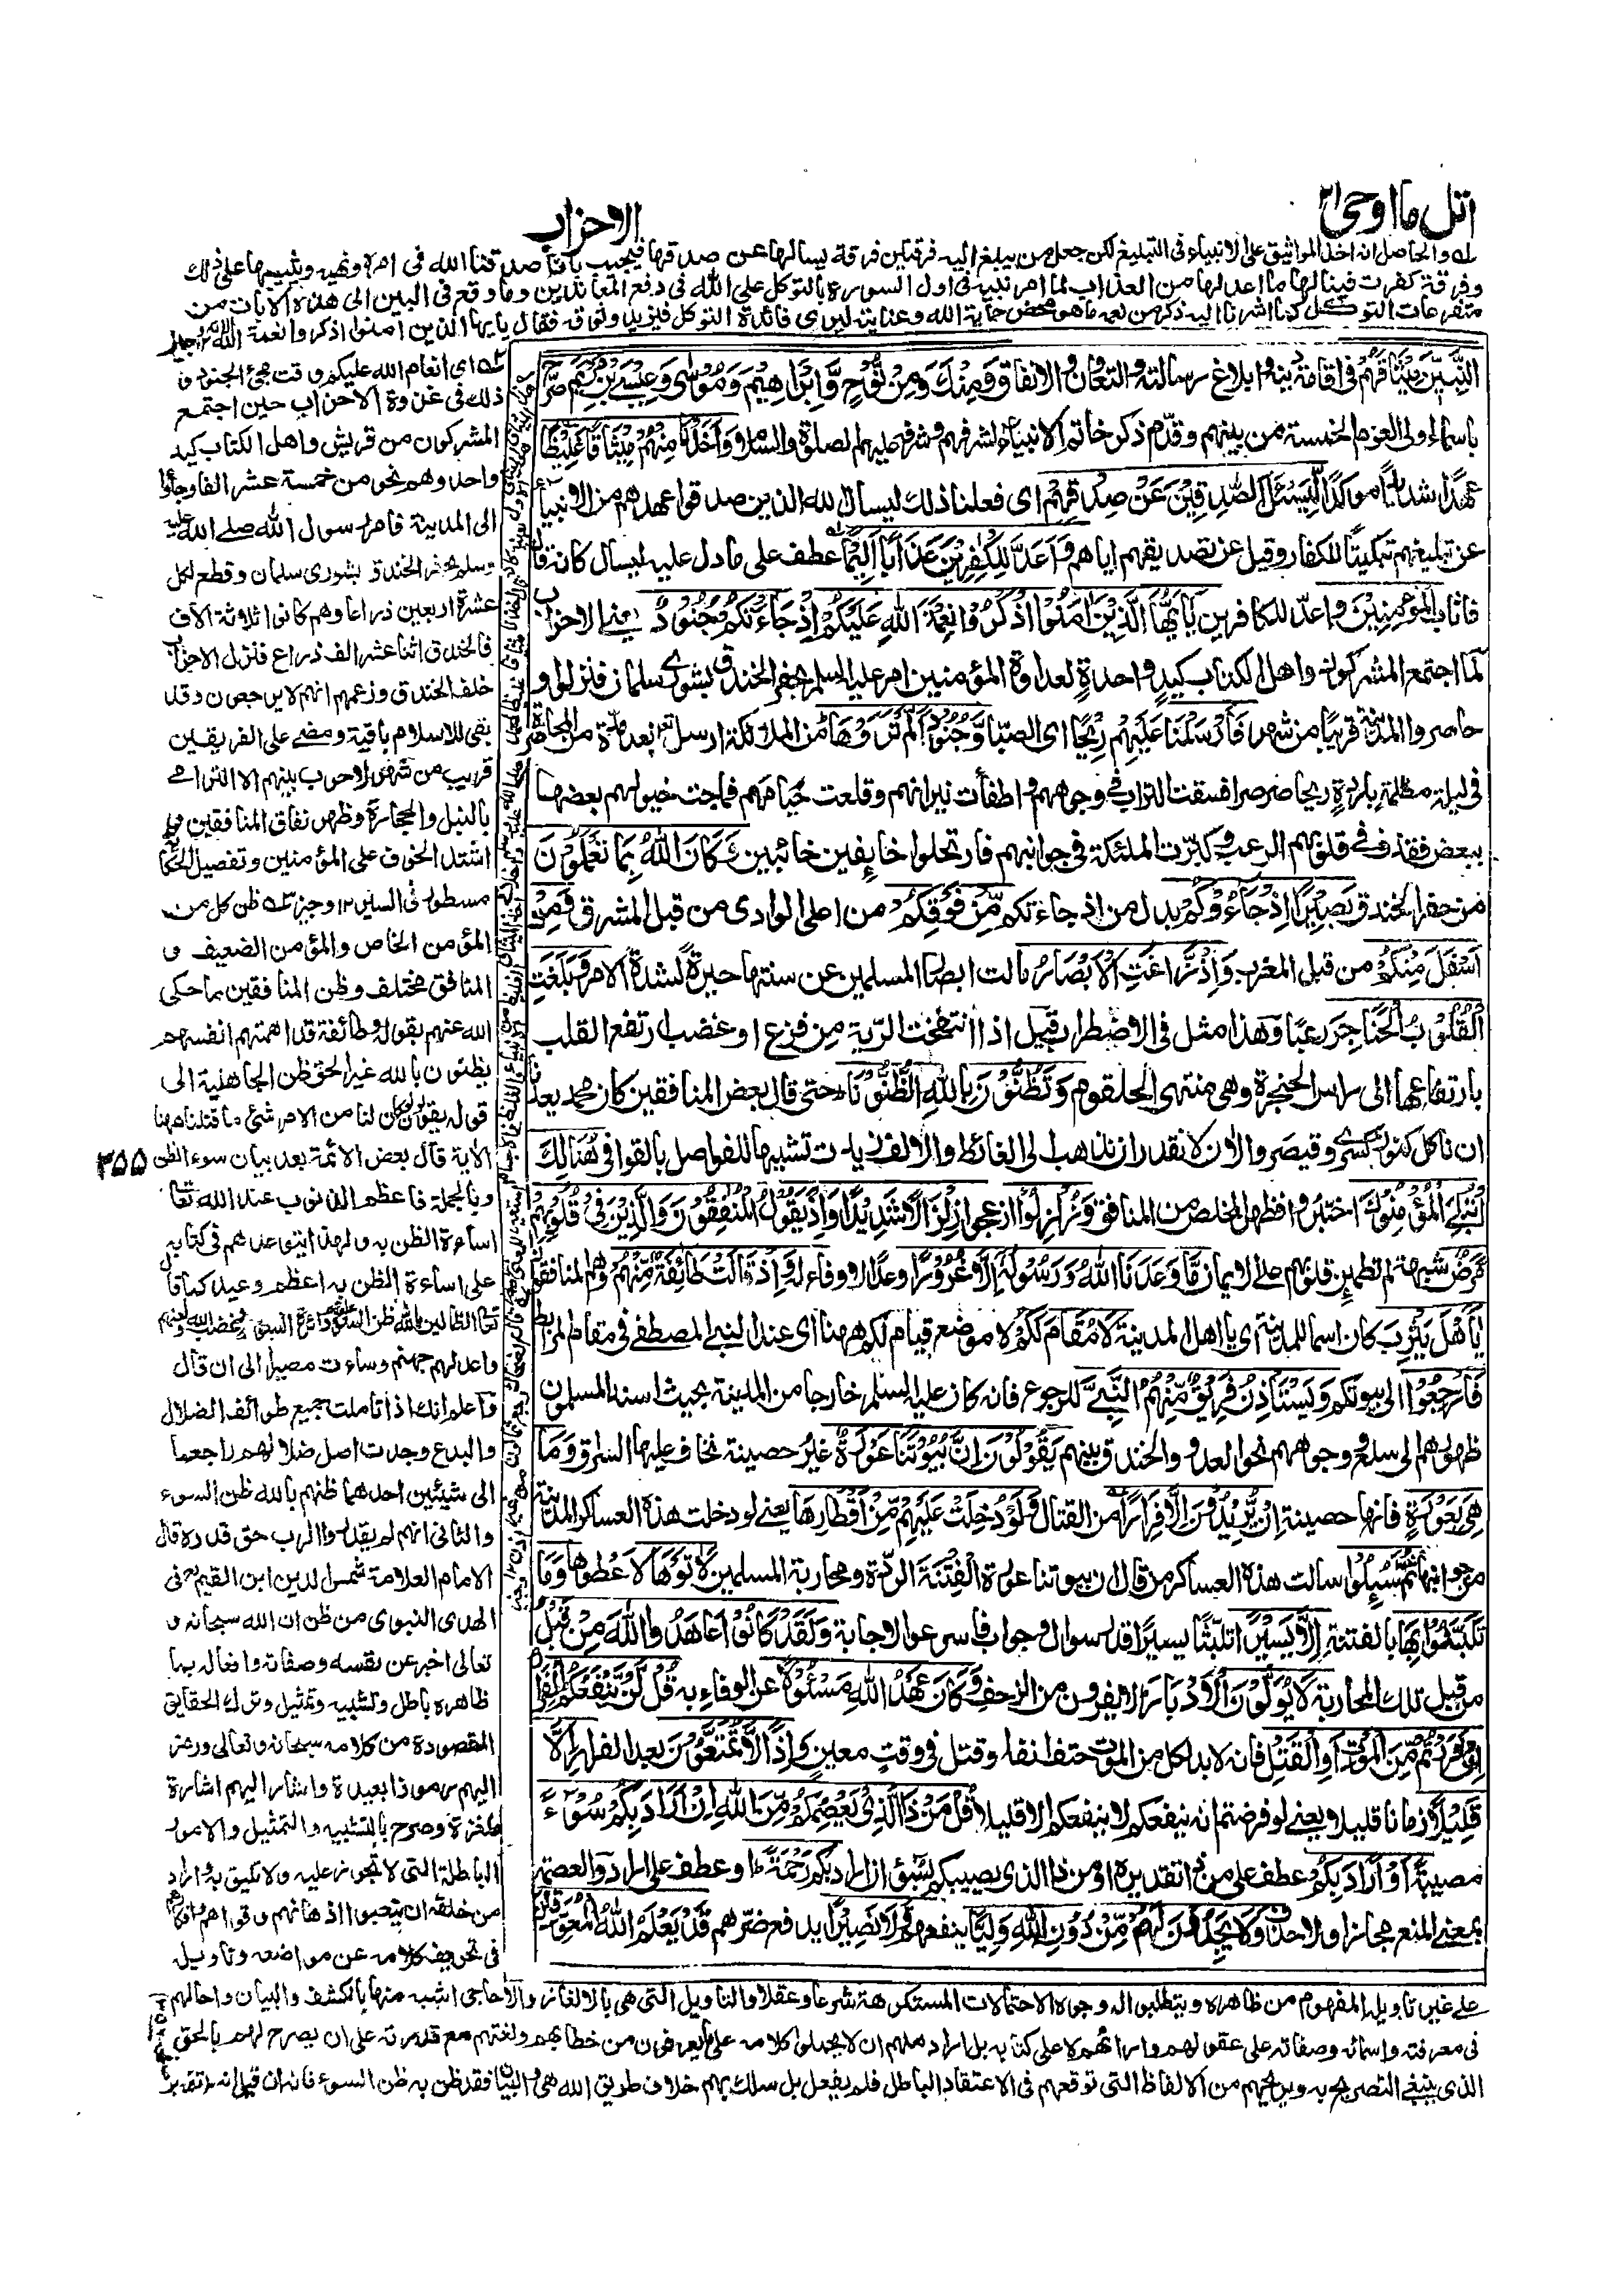 اتل ما اوحی ۲۱
الاحزاب
له والحاصل انه اخذ المواثيق على الانبياء فى التبليغ لكن جعل من يبلغ اليه فرقتين فرقة يسالها عن صدقها فيجيب بانا صدقنا الله فى امره ونهيه ويثيبها على ذلك
وفرقة كفرت فينالها ما اعد لها من العذاب لما امر نبيه فى اول السورة بالتوكل على الله فى دفع المعاندين وما وقع فى البين الى هذه الايات من
متفرعات التوكل كما اشرنا اليه ذكر من نعمه ما هو محض حماية الله وعنايته ليرى فائدة التوكل فيزيد وثوقه فقال يايها الذين امنوا اذكروا نعمة الله
النَّبِيّنَ مِيْثَاقَهُمْ فى اقامة دينه وابلاغ رسالته والتعاون والاتفاق وَمِنْكَ وَمِنْ نُّوْحٍ وَّاِبْرَاهِيْمَ وَمُوْسٰى وَعِيْسَى بْنِ مَرْيَمَ صرّح
باسماء اولى العزم الخمسة من بينهم وقدّم ذكر خاتم الانبياء لشرفهم وشرفه عليهم الصلوة والسلام وَاَخَذْنَا مِنْهُمْ مِّيْثَاقًا غَلِيْظًا
عهدًا شديدًا موكدًا لِّيَسْئَلَ الصّٰدِقِيْنَ عَنْ صِدْقِهِمْ اى فعلنا ذلك ليسال الله الذين صدقوا عهدهم من الانبياء
عن تبليغهم تبكيتًا للكفار وقيل عن تصديقهم اياهم وَاَعَدَّ لِلْكٰفِرِيْنَ عَذَابًا اَلِيْمًا عطف على ما دل عليه ليسال كانه قال
فاثاب المؤمنين واعدّ للكافرين يٰٓاَيُّهَا الَّذِيْنَ اٰمَنُوْا اذْكُرُوْا نِعْمَةَ اللهِ عَلَيْكُمْ اِذْ جَآءَتْكُمْ جُنُوْدٌ يعنى الاحزاب
لما اجتمع المشركون واهل الكتاب كيدٍ واحدةٍ لعداوة المؤمنين امر عليه السلم بحفر الخندق بشورى سلمان فنزلوا و
حاصروا المدينة قريبًا من شهر فَاَرْسَلْنَا عَلَيْهِمْ رِيْحًا اى الصبا وَّجُنُوْدًا لَّمْ تَرَوْهَا من الملائكة ارسل بعد مدة من المحاصرة
فى ليلة مظلمة باردة ريحا صرصرا فسقت التراب فى وجوههم واطفأت نيرانهم وقلعت خيامهم فماجت خيولهم بعضها
ببعض فقذف فى قلوبهم الرعب وكبّرت الملئكة فى جوانبهم فارتحلوا خايفين خائبين وَكَانَ اللهُ بِمَا تَعْمَلُوْنَ
من حفر الخندق بَصِيْرًا اِذْ جَآءُوْكُمْ بدل من اذ جاءتكم مِّنْ فَوْقِكُمْ من اعلى الوادى من قبل المشرق وَمِنْ
اَسْفَلَ مِنْكُمْ من قبل المغرب وَاِذْ زَاغَتِ الْاَبْصَارُ مالت ابصار المسلمين عن سننها حيرةً لشدة الامر وَبَلَغَتِ
الْقُلُوْبُ الْحَنَاجِرَ رعبًا وهذا مثل فى الاضطراب قيل اذا انتفخت الرّية مِن فزع او غضب ارتفع القلب
بارتفاعها الى راس الحنجرة وهى منتهى الحلقوم وَتَظُنُّوْنَ بِاللهِ الظُّنُوْنَا حتى قال بعض المنافقين كان محمد يعدنا
ان ناكل كنوز كسرى وقيصر والان لا نقدر ان نذهب الى الغائط والالف زيدت تشبيها للفواصل بالقوافى هُنَالِكَ
ابْتُلِيَ الْمُؤْمِنُوْنَ اختبروا فظهر المخلص من المنافق وَزُلْزِلُوْا ازعجوا زِلْزَالًا شَدِيْدًا وَاِذْ يَقُوْلُ الْمُنٰفِقُوْنَ وَالَّذِيْنَ فِيْ قُلُوْبِهِمْ
مَّرَضٌ شبهة لم تطمئن قلوبهم على الايمان مَّا وَعَدَنَا اللهُ وَرَسُوْلُهٗٓ اِلَّا غُرُوْرًا وعدًا لا وفاء له وَاِذْ قَالَتْ طَّآئِفَةٌ مِّنْهُمْ وهم المنافقون
يٰٓاَهْلَ يَثْرِبَ كان اسما للمدينة اى يا اهل المدينة لَا مُقَامَ لَكُمْ لا موضع قيام لكم ههنا اى عند النبى المصطفى فى مقام المرابط
فَارْجِعُوْا الى بيوتكم وَيَسْتَاْذِنُ فَرِيْقٌ مِّنْهُمُ النَّبِيَّ للرجوع فانه كان عليه السلم خارجا من المدينة بحيث اسند المسلمون
ظهورهم الى سلع ووجوههم نحو العدو والخندق بينهم يَقُوْلُوْنَ اِنَّ بُيُوْتَنَا عَوْرَةٌ غير حصينة نخاف عليها السارق وَمَا
هِيَ بِعَوْرَةٍ فانها حصينة اِنْ يُّرِيْدُوْنَ اِلَّا فِرَارًا من القتال وَلَوْ دُخِلَتْ عَلَيْهِمْ مِّنْ اَقْطَارِهَا يعنى لو دخلت هذه العساكر المدينة
من جوانبها ثُمَّ سُئِلُوا سالت هذه العساكر من قال ان بيوتنا عورة الْفِتْنَةَ الردّة ومحاربة المسلمين لَاٰتَوْهَا لاعطوها وَمَا
تَلَبَّثُوْا بِهَا بالفتنة اِلَّا يَسِيْرًا تلبّثا يسيرًا قدر سوال وجواب فاسرعوا الاجابة وَلَقَدْ كَانُوْا عَاهَدُوا اللهَ مِنْ قَبْلُ
من قبل تلك المحاربة لَا يُوَلُّوْنَ الْاَدْبَارَ لا يفرون من الزحف وَكَانَ عَهْدُ اللهِ مَسْئُوْلًا عن الوفاء به قُلْ لَّنْ يَّنْفَعَكُمُ الْفِرَارُ
اِنْ فَرَرْتُمْ مِّنَ الْمَوْتِ اَوِ الْقَتْلِ فانه لا بد لكل من الموت حتف انفه او قتل فى وقت معين وَاِذًا لَّا تُمَتَّعُوْنَ بعد الفرار اِلَّا
قَلِيْلًا زمانا قليلا ويعنى لو فرضتم انه ينفعكم لا ينفعكم الا قليلا قُلْ مَنْ ذَا الَّذِيْ يَعْصِمُكُمْ مِّنَ اللهِ اِنْ اَرَادَ بِكُمْ سُوْٓءًا
مصيبة اَوْ اَرَادَ بِكُمْ عطف على من ذا تقديره او من ذا الذى يصيبكم بسوء ان اراد بكم رَحْمَةً او عطف على اراد والعصمة
بمعنى المنع مجازا ولا حذف وَلَا يَجِدُوْنَ لَهُمْ مِّنْ دُوْنِ اللهِ وَلِيًّا ينفعهم وَّلَا نَصِيْرًا يدفع ضرّهم قَدْ يَعْلَمُ اللهُ الْمُعَوِّقِيْنَ
له اى انعام الله عليكم وقت مجئ الجنود و
ذلك فى غزوة الاحزاب حين اجتمع
المشركون من قريش واهل الكتاب كيد
واحد وهم نحو من خمسة عشر الفا وجاؤا
الى المدينة فامر رسول الله صلى الله عليه
وسلم بحفر الخندق بشورى سلمان وقطع لكل
عشرة اربعين ذراعا وهم كانوا ثلاثة الاف
فالخندق اثنا عشر الف ذراع فنزل الاحزاب
خلف الخندق وزعمهم انهم لا يرجعون وقد
بقى للاسلام باقية ومضى على الفريقين
قريب من شهر لا حرب بينهم الا الترامى
بالنبل والحجارة وظهر نفاق المنافقين و
اشتد الخوف على المؤمنين وتفصيل الحكاية
مسطور فى السير ۱۲ وجيز ظن كل من
المؤمن الخاص والمؤمن الضعيف و
المنافق مختلف وظن المنافقين ما حكى
الله عنهم بقوله وطائفة قد اهمتهم انفسهم
يظنون بالله غير الحق ظن الجاهلية الى
قوله يقولون لو كان لنا من الامر شئ ما قتلنا ههنا
الاية قال بعض الائمة بعد بيان سوء الظن
وبالجملة فاعظم الذنوب عند الله تعالى
اساءة الظن به ولهذا يتوعد هم فى كتابه
على اساءة الظن به اعظم وعيد كما قال
تعالى الظانين بالله ظن السوء عليهم دائرة السوء وغضب الله عليهم ولعنهم
واعد لهم جهنم وساءت مصيرا الى ان قال
واعلم انك اذا تاملت جميع طوائف الضلال
والبدع وجدت اصل ضلالهم راجعا
الى شيئين احدهما ظنهم بالله ظن السوء
والثانى انهم لم يقدروا الرب حق قدره قال
الامام العلامة شمس الدين ابن القيم فى
الهدى النبوى من ظن ان الله سبحانه و
تعالى اخبر عن نفسه وصفاته وافعاله بما
ظاهره باطل وتشبيه وتمثيل وترك الحقايق
المقصودة من كلامه سبحانه وتعالى ورمز
اليهم رموزا بعيدة واشار اليهم اشارة
ملغزة وصرح بالتشبيه والتمثيل والامور
الباطلة التى لا تجوز عليه ولا تليق به واراد
من خلقه ان يتعبوا اذهانهم وقواهم وافكارهم
فى تحريف كلامه عن مواضعه وتاويله
۳۵۵
على غير تاويله المفهوم من ظاهره ويتطلبوا له وجوه الاحتمالات المستكرهة شرعا وعقلا والتاويل التى هى بالالغاز والاحاجى اشبه منها بالكشف والبيان واحالهم
فى معرفته واسمائه وصفاته على عقولهم وارائهم لا على كتابه بل اراد منهم ان لا يحملوا كلامه على ما يعرفون من خطابهم ولغتهم مع قدرته على ان يصرح لهم بالحق
الذى ينبغى التصريح به ويريحهم من الالفاظ التى توقعهم فى الاعتقاد الباطل فلم يفعل بل سلك بهم خلاف طريق الهدى والبيان فقد ظن به ظن السوء فانه ان قيل انه